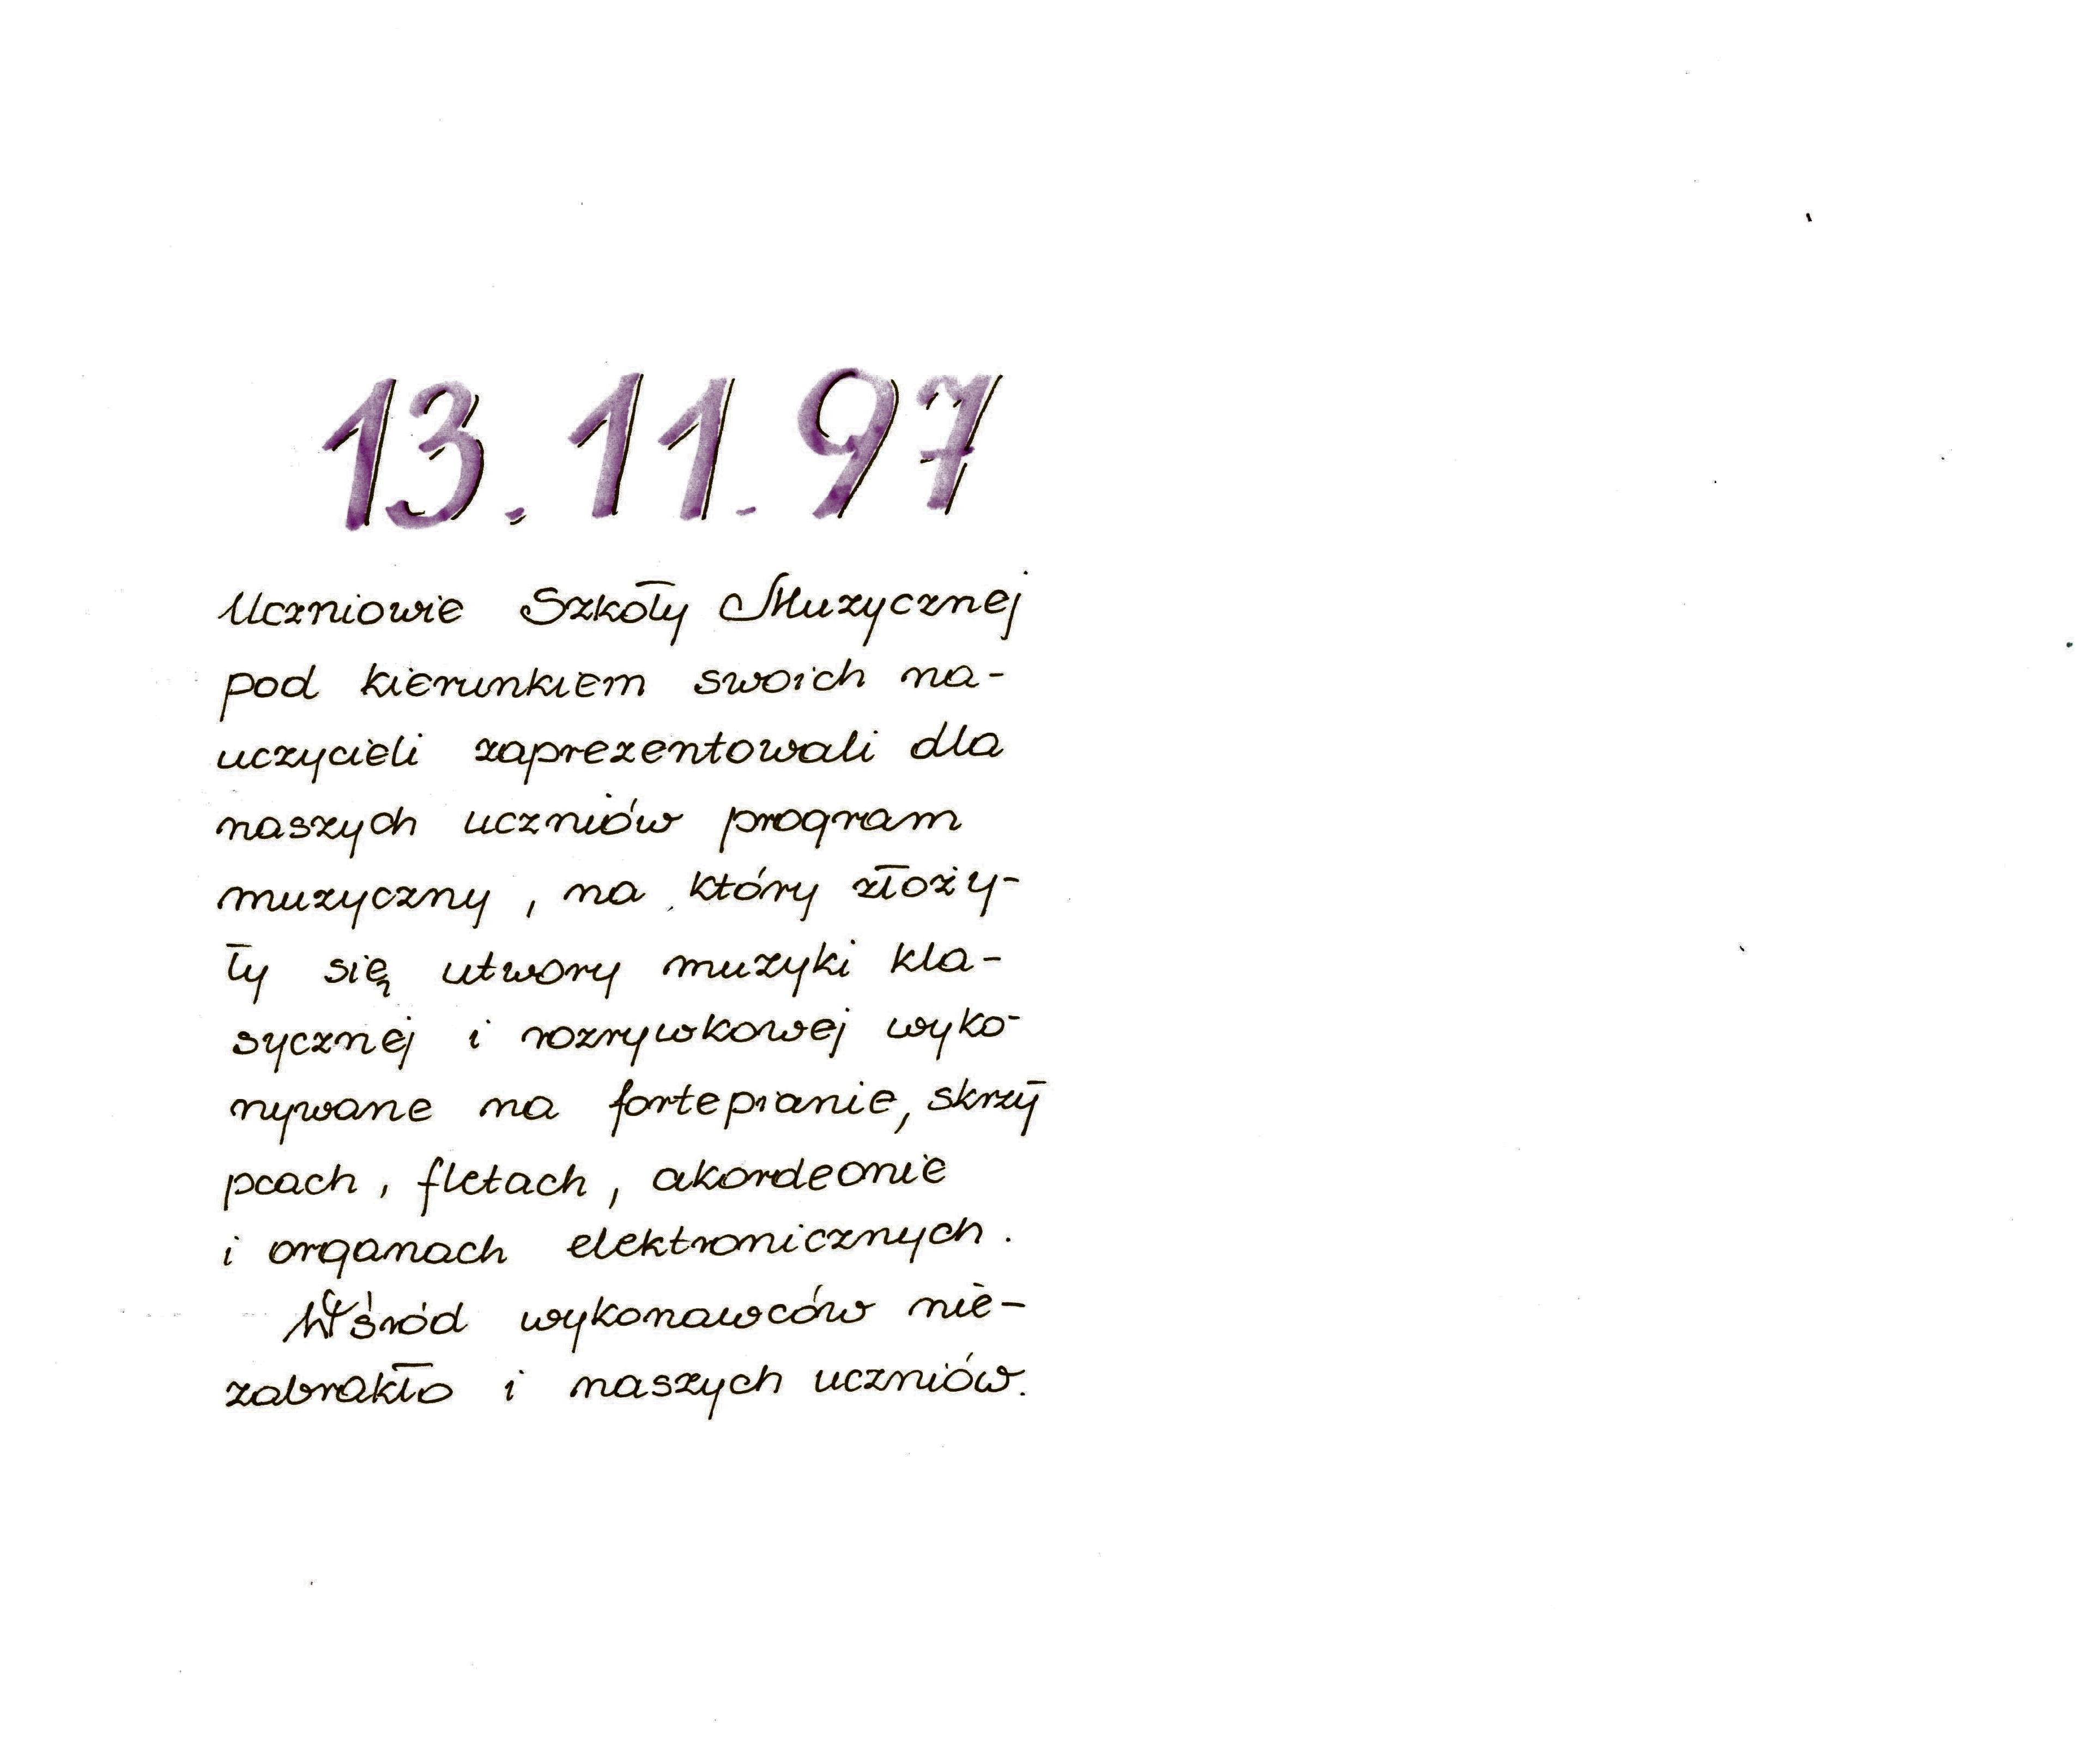 13.11.97
Uczniowie Szkoły Muzycznej
pod kierunkiem swoich na-
uczycieli zaprezentowali dla
naszych uczniów program
muzyczny, na który złoży-
ły się utwory muzyki kla-
sycznej i rozrywkowej wyko-
nywane na fortepianie, skrzy-
pcach, fletach, akordeonie
i organach elektronicznych.
Wśród wykonawców nie-
zabrakło i naszych uczniów.